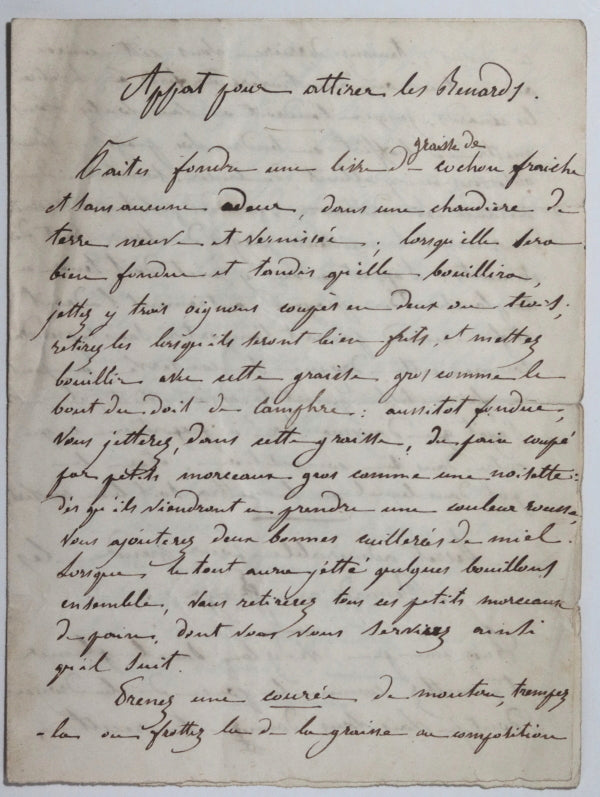 Appat pour attirer les Renards.
graisse de
Faites fondre une livre de cochon fraiche
et sans aucune odeur, dans une chaudiere de
terre neuve et vernissée ; lorsqu'elle sera
bien fondue et tandis qu'elle bouillira,
jettez y trois oignons coupés en deux ou trois ;
retirez les lorsqu'ils seront bien frits, et mettez
bouillir avec cette graisse gros comme le
bout du doit de camphre : aussitot fondue,
vous jetterez, dans cette graisse, du pain coupé
par petits morceaux gros comme une noisette :
dès qu'ils viendront a prendre une couleur rousse,
vous ajouterez deux bonnes cuillerées de miel.
Lorsque le tout aura jetté quelques bouillons
ensemble, vous retirerez tous ces petits morceaux
de pain, dont vous vous servirez ainsi
qu'il suit.
Prenez une courée de mouton, trempez
-la ou frottez la de la graisse ou composition